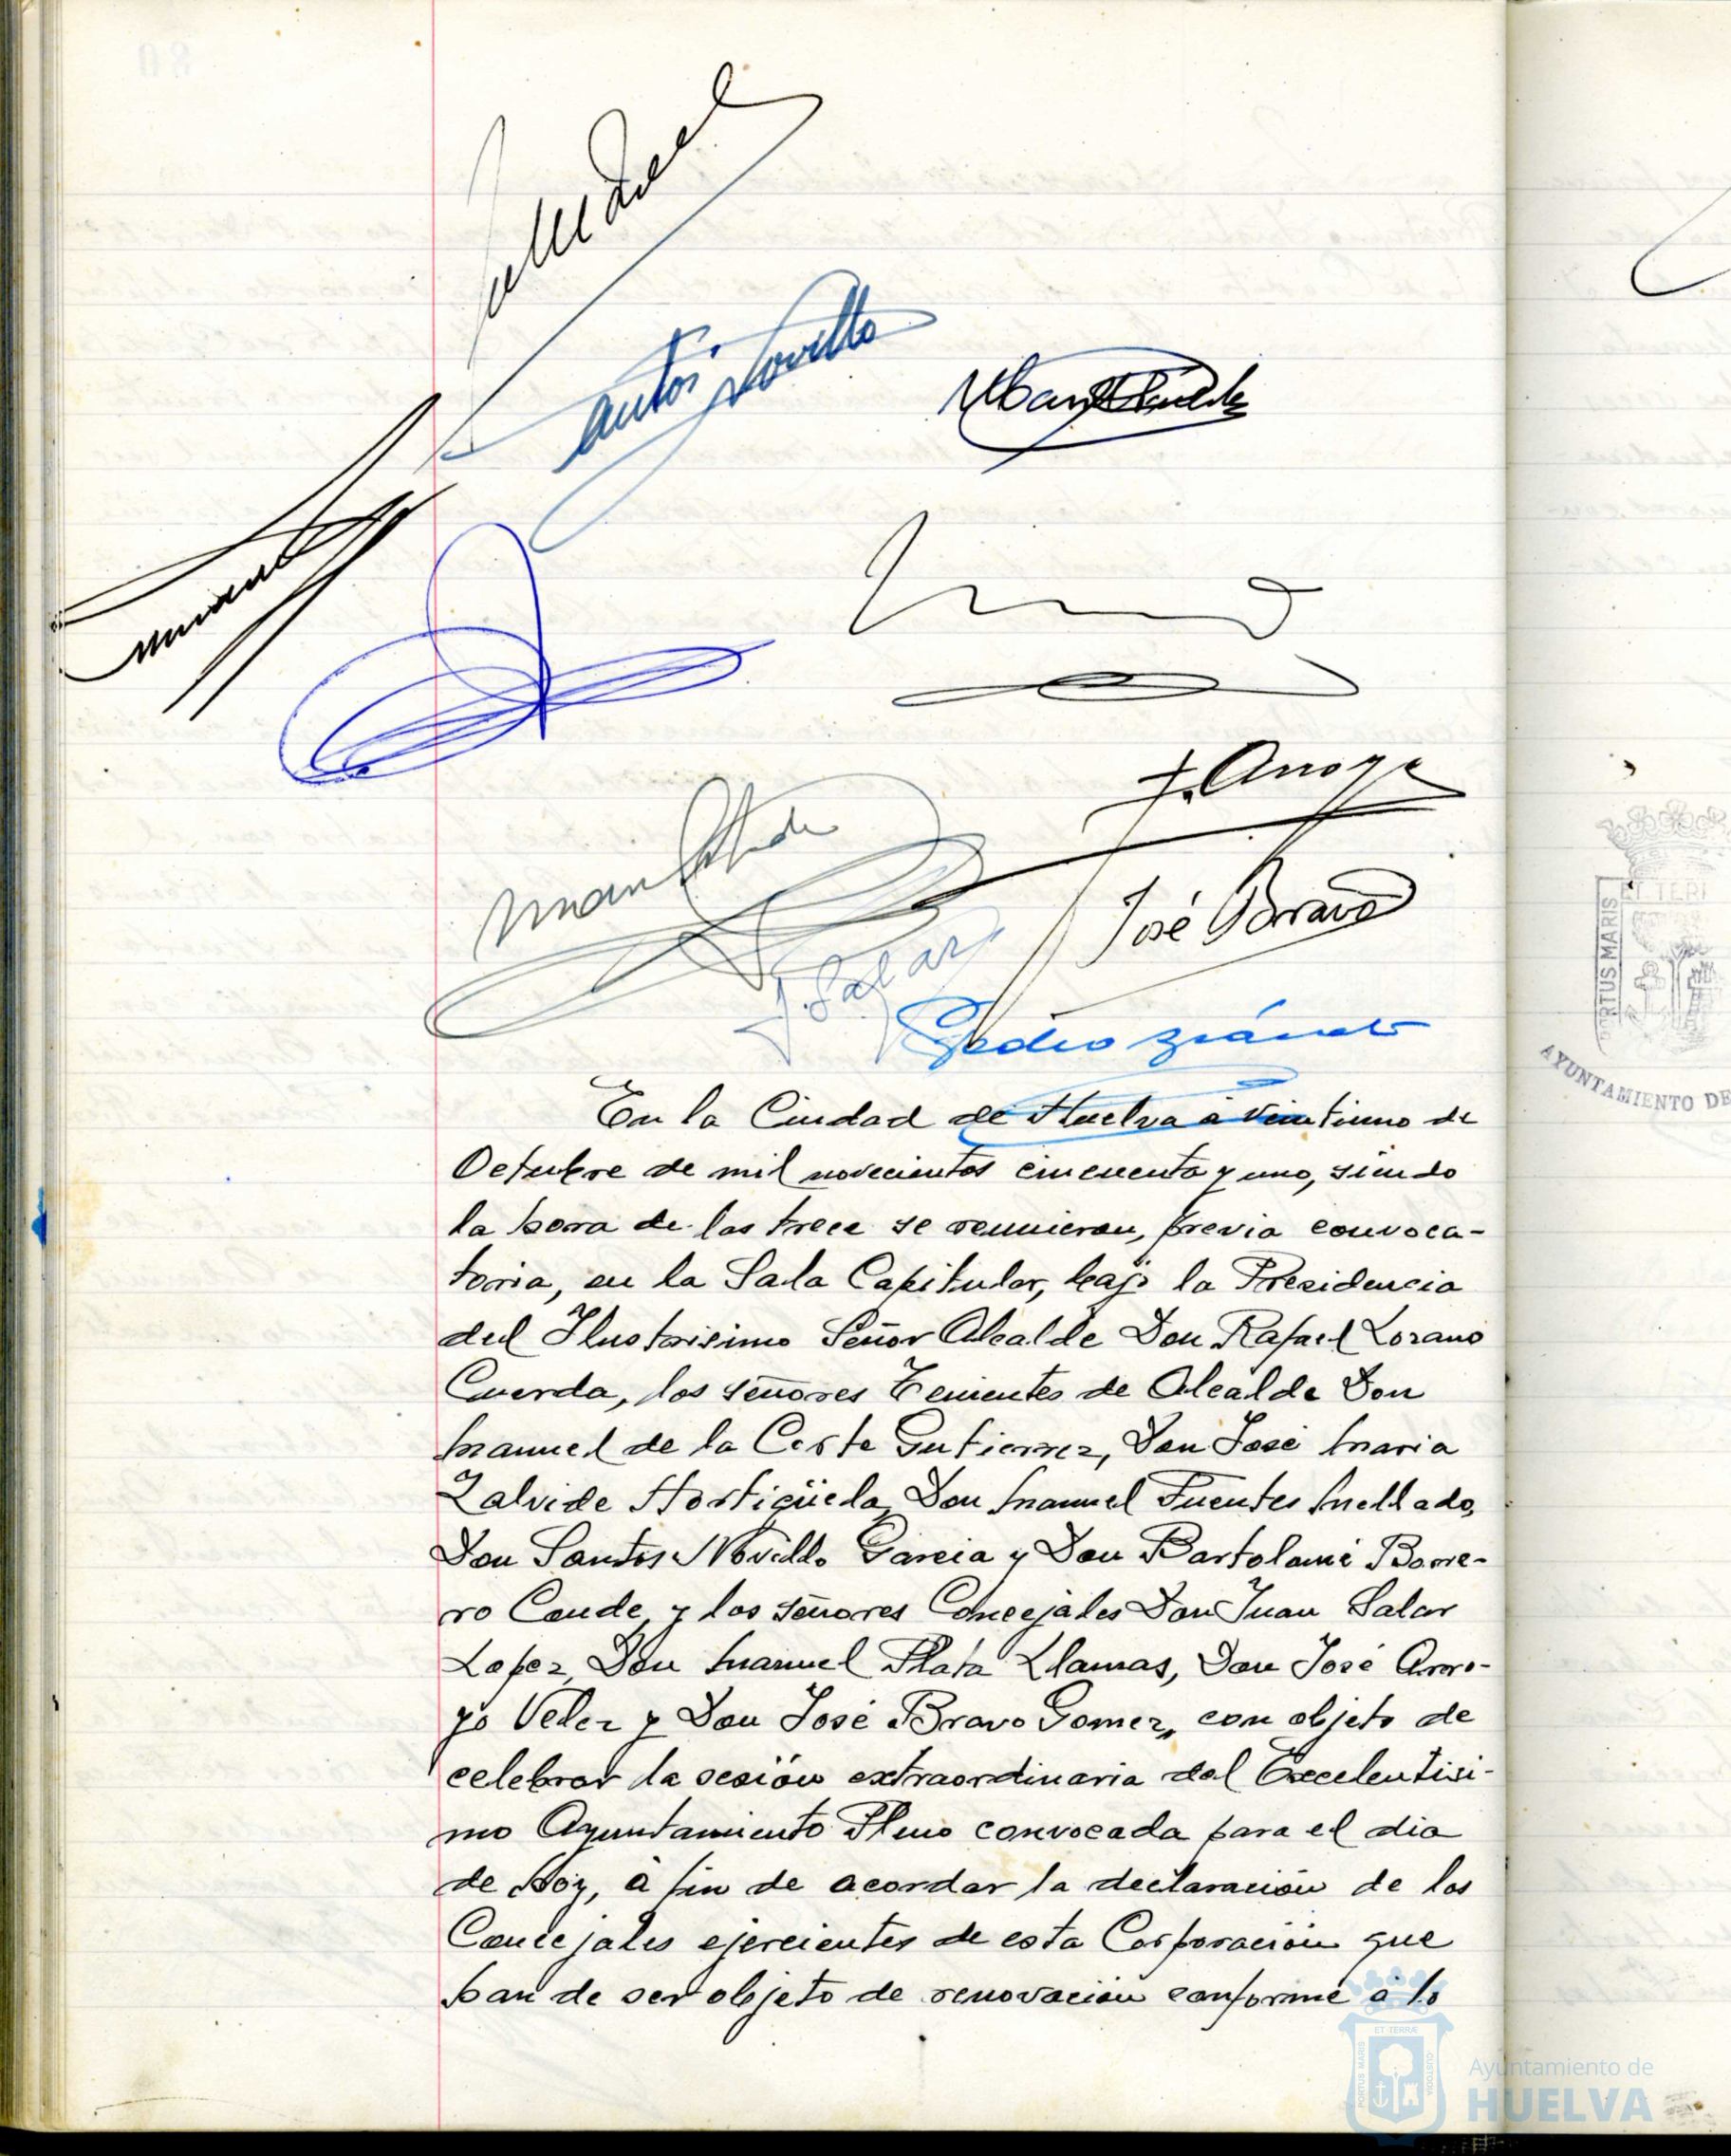 Santos Novillo
J. Arroyo
José Bravo
J. Salar
En la Ciudad de Huelva á veintiuno de
Octubre de mil novecientos cincuenta y uno, siendo
la hora de las trece se reunieron, previa convoca-
toria, en la Sala Capitular, bajo la Presidencia
del Ilustrisimo Señor Alcalde Don Rafael Lozano
Cuerda, los señores Tenientes de Alcalde Don
Manuel de la Corte Gutierrez, Don José Maria
Zalvide Hortigüela, Don Manuel Fuentes Mellado,
Don Santos Novillo Garcia y Don Bartolomé Borre-
ro Conde, y los señores Concejales Don Juan Salar
Lopez, Don Manuel Plata Llamas, Don José Arro-
yo Velez y Don José Bravo Gomez, con objeto de
celebrar la sesión extraordinaria del Excelentisi-
mo Ayuntamiento Pleno convocada para el dia
de hoy, á fin de acordar la declaración de los
Concejales ejercientes de esta Corporación que
han de ser objeto de renovación conforme á lo
PORTUS MARIS
ET TERR
AYUNTAMIENTO DE
PORTUS MARIS
ET TERRÆ
CUSTODIA
Ayuntamiento de
HUELVA